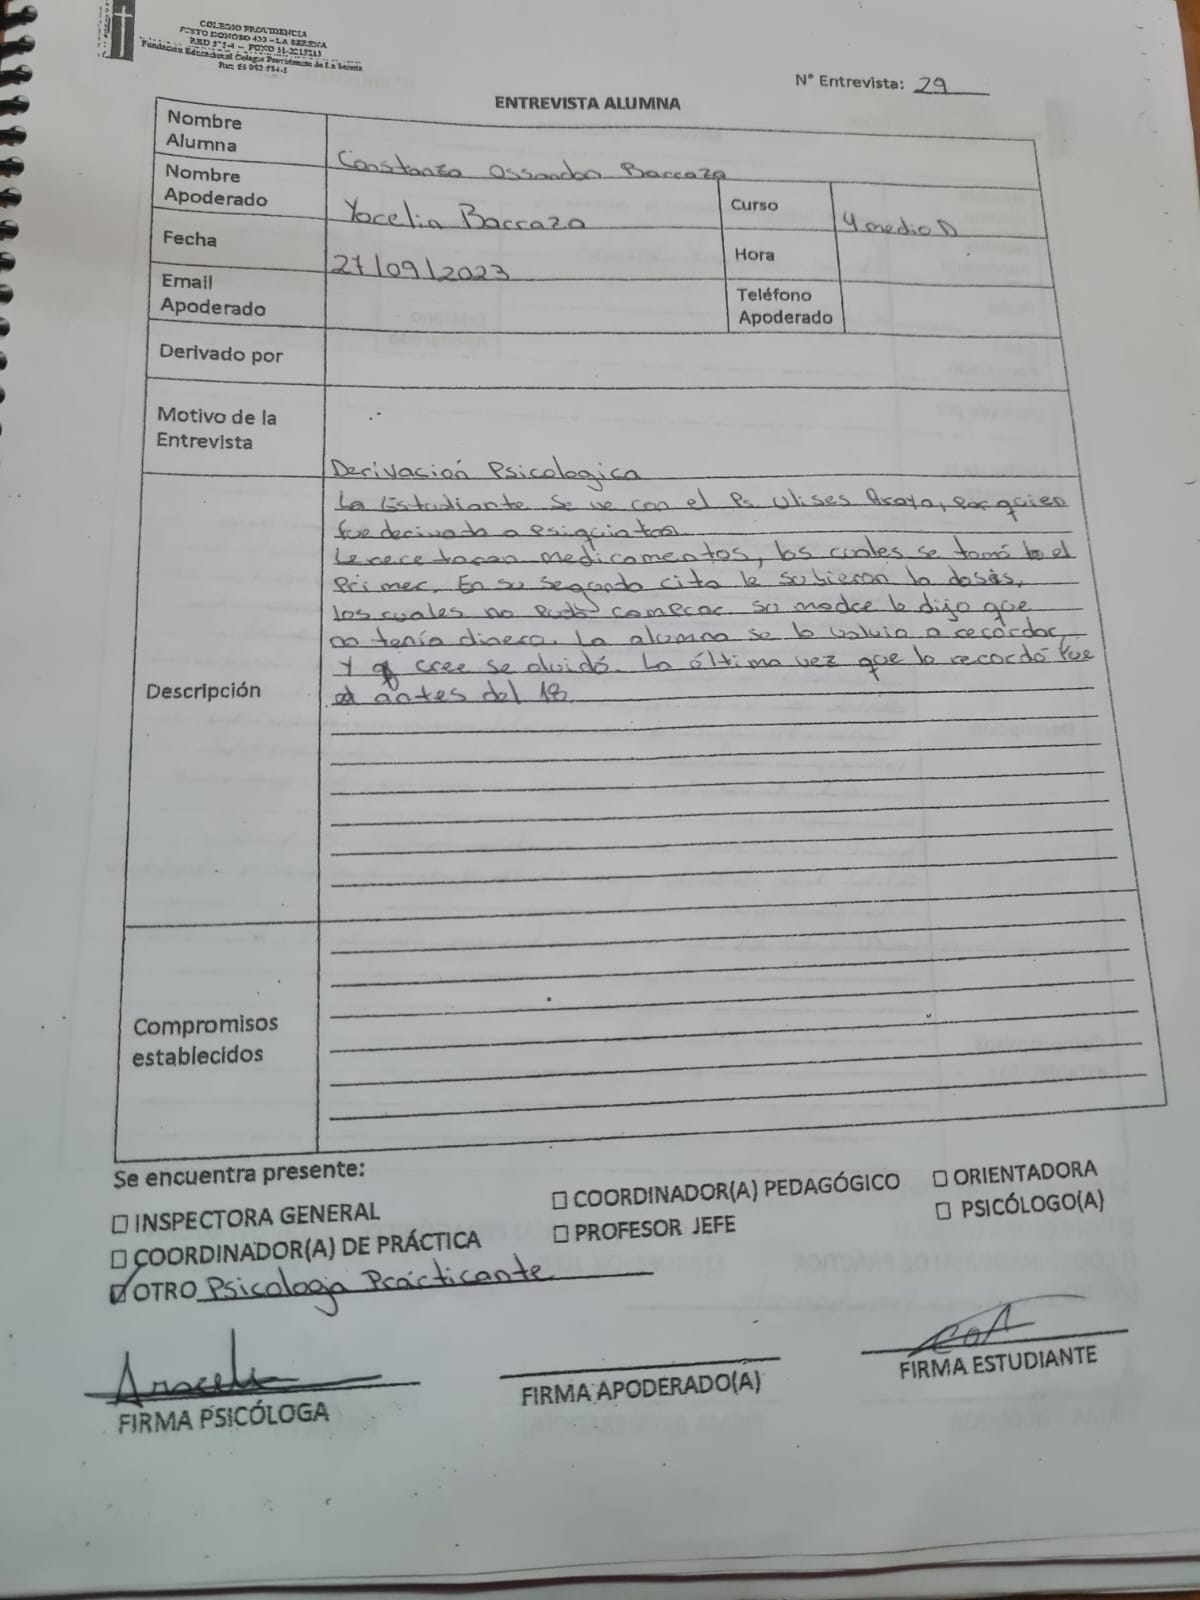 COLEGIO PROVIDENCIA
JUSTO DONOSO 420 - LA SERENA
Fundación Educacional Colegio Providencia de La Serena
N° Entrevista: 29
ENTREVISTA ALUMNA
Nombre Alumna Constanza Ossandon Barraza
Nombre Apoderado Yocelin Barraza Curso 4 medio D
Fecha 27/09/2023 Hora
Email Apoderado Teléfono Apoderado
Derivado por
Motivo de la Entrevista Derivación Psicologica
Descripción
La Estudiante se ve con el Ps. Ulises Araya, por quien
fue derivada a psiquiatra
Le recetaron medicamentos, los cuales se tomó el
Primer. En su segunda cita le subieron la dosis,
los cuales no pudo comprar. su madre le dijo que
no tenía dinero. La alumna se lo volvio a recordar,
y q cree se olvidó. La última vez que lo recordó fue
antes del 18.
Compromisos establecidos
Se encuentra presente:
☐ INSPECTORA GENERAL ☐ COORDINADOR(A) PEDAGÓGICO ☐ ORIENTADORA
☐ COORDINADOR(A) DE PRÁCTICA ☐ PROFESOR JEFE ☐ PSICÓLOGO(A)
☑ OTRO Psicologa Practicante
Araceli
FIRMA PSICÓLOGA FIRMA APODERADO(A) FIRMA ESTUDIANTE